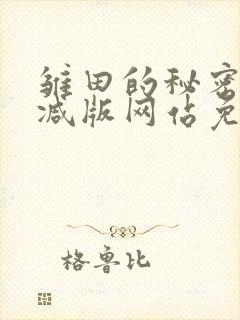 雏田的秘密
减版网佔免
格鲁比